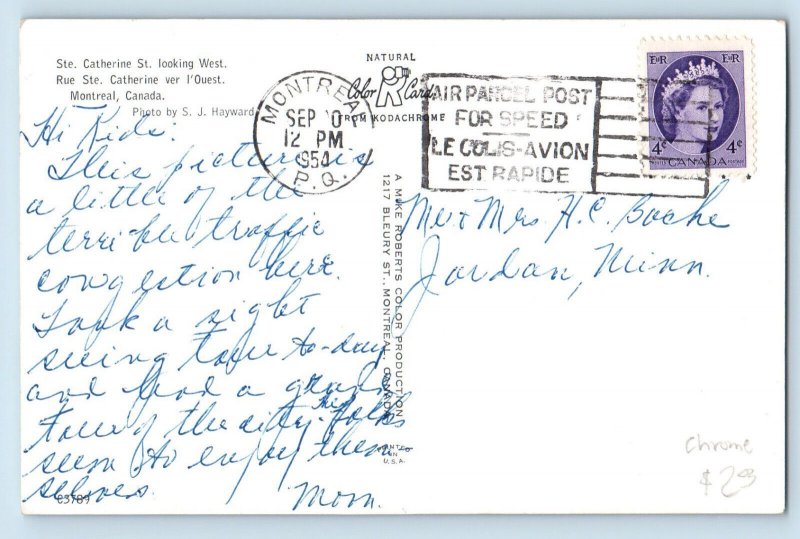 Ste. Catherine St. looking West.
Rue Ste. Catherine ver l'Ouest.
Montreal, Canada.
Photo by S. J. Hayward
NATURAL
Color Card
FROM KODACHROME
MONTREAL
SEP 10
12 PM
1954
P.Q.
AIR PARCEL POST
FOR SPEED
LE COLIS-AVION
EST RAPIDE
E II R E II R
4¢ 4¢
POSTES CANADA POSTAGE
Hi Kids:
This picture is
a little of the
terrible traffic
congestion here.
Took a sight
seeing tour to-day
and had a grand
tour of the city. The folks
seem to enjoy them
selves.
Mom.
Mr + Mrs H.C. Bache
Jordan, Minn.
A MIKE ROBERTS COLOR PRODUCTION
1217 BLEURY ST., MONTREAL, CANADA
PRINTED
IN
U.S.A.
C3789
Chrome
$ 2